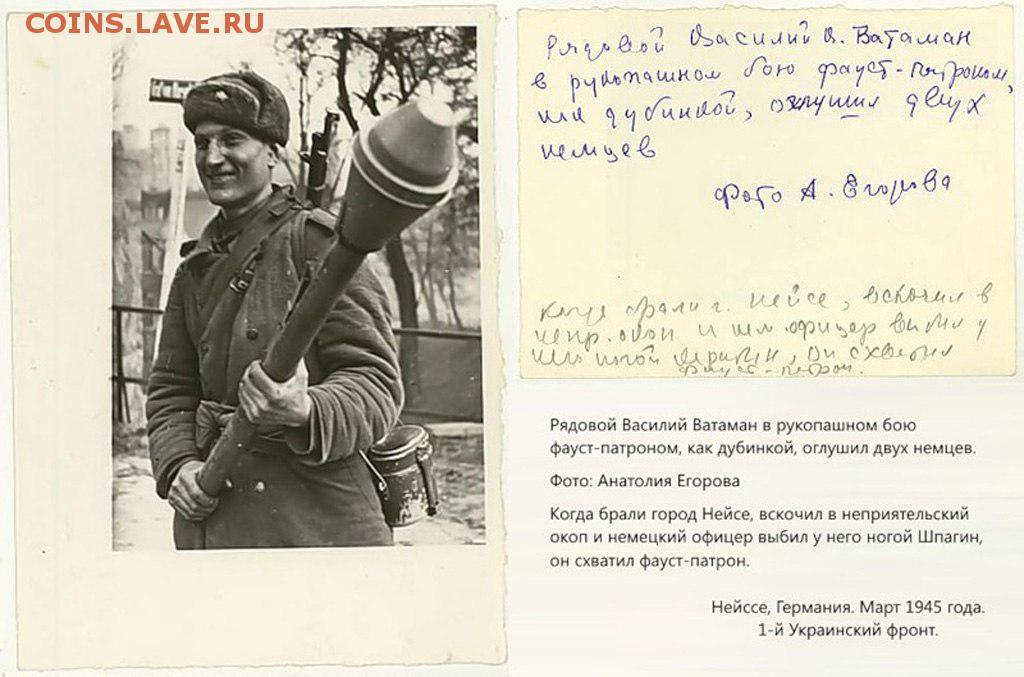 COINS.LAVE.RU
Рядовой Василий В. Ватаман
в рукопашном бою фауст-патроном,
как дубинкой, оглушил двух
немцев
Фото А. Егорова
когда брали г. Нейсе, вскочил в
непр. окоп и нем. офицер выбил у
него ногой он схватил
фауст-патрон.
Рядовой Василий Ватаман в рукопашном бою
фауст-патроном, как дубинкой, оглушил двух немцев.
Фото: Анатолия Егорова
Когда брали город Нейсе, вскочил в неприятельский
окоп и немецкий офицер выбил у него ногой Шпагин,
он схватил фауст-патрон.
Нейссе, Германия. Март 1945 года.
1-й Украинский фронт.